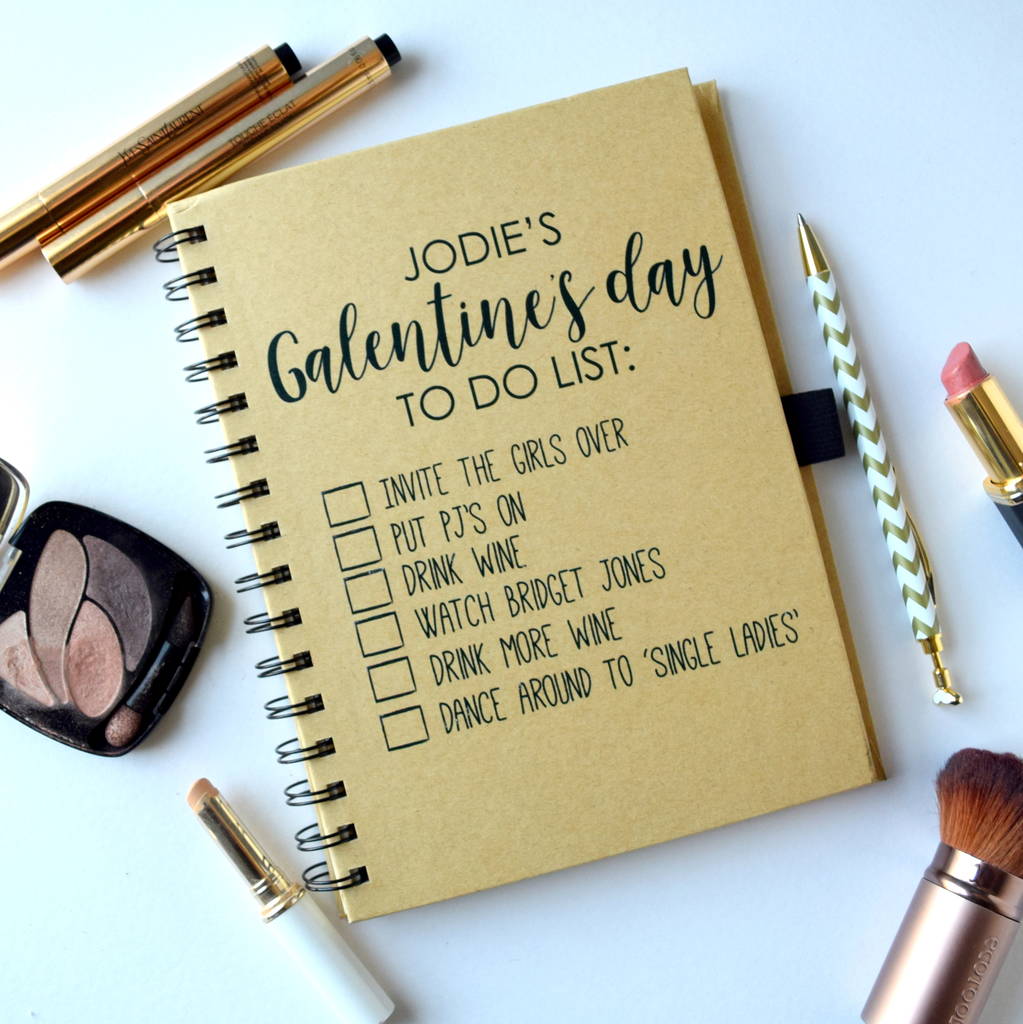 YVESSAINTLAURENT
TOUCHE ÉCLAT
JODIE'S
Galentine's day
TO DO LIST:
INVITE THE GIRLS OVER
PUT PJ'S ON
DRINK WINE
WATCH BRIDGET JONES
DRINK MORE WINE
DANCE AROUND TO 'SINGLE LADIES'